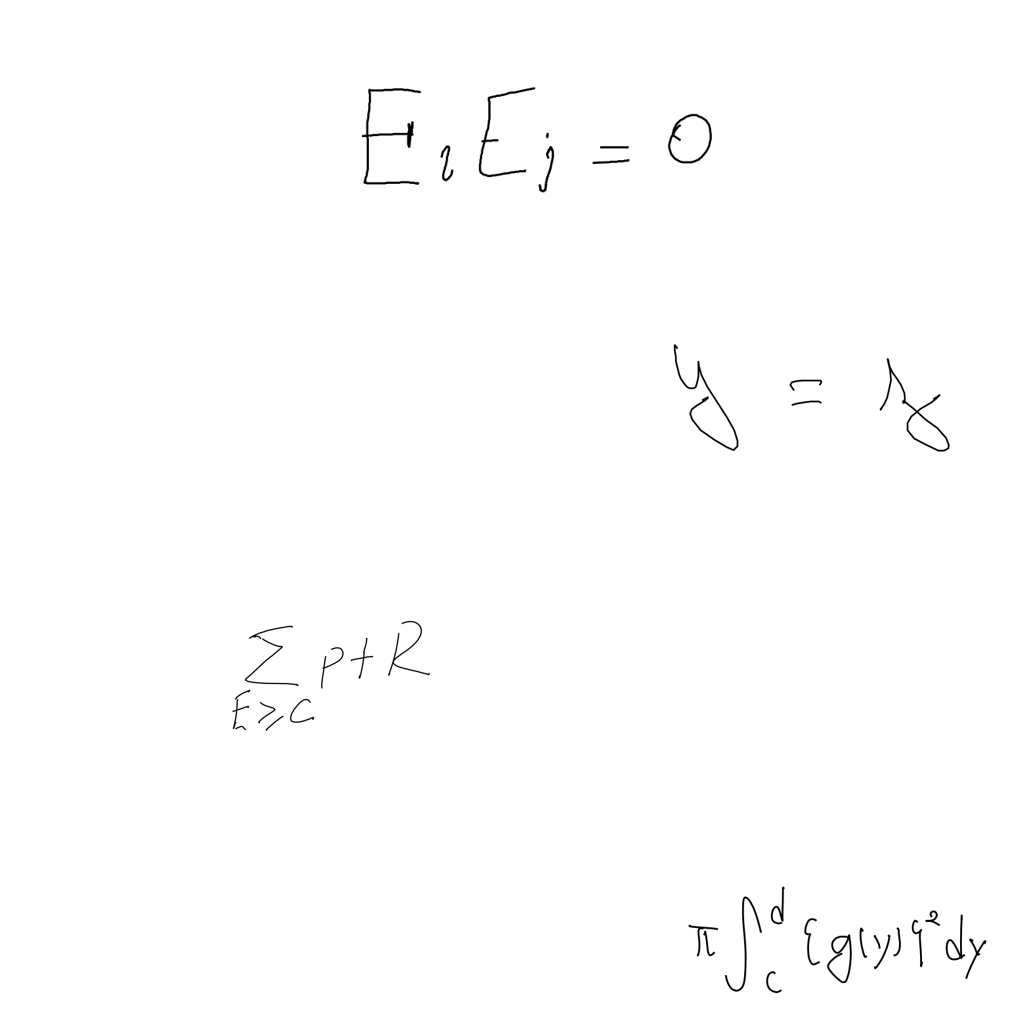 E_i E_j = 0
y = s_y
\sum_{E \geq C} P + R
\pi \int_c^d \{g(y)\}^2 dy